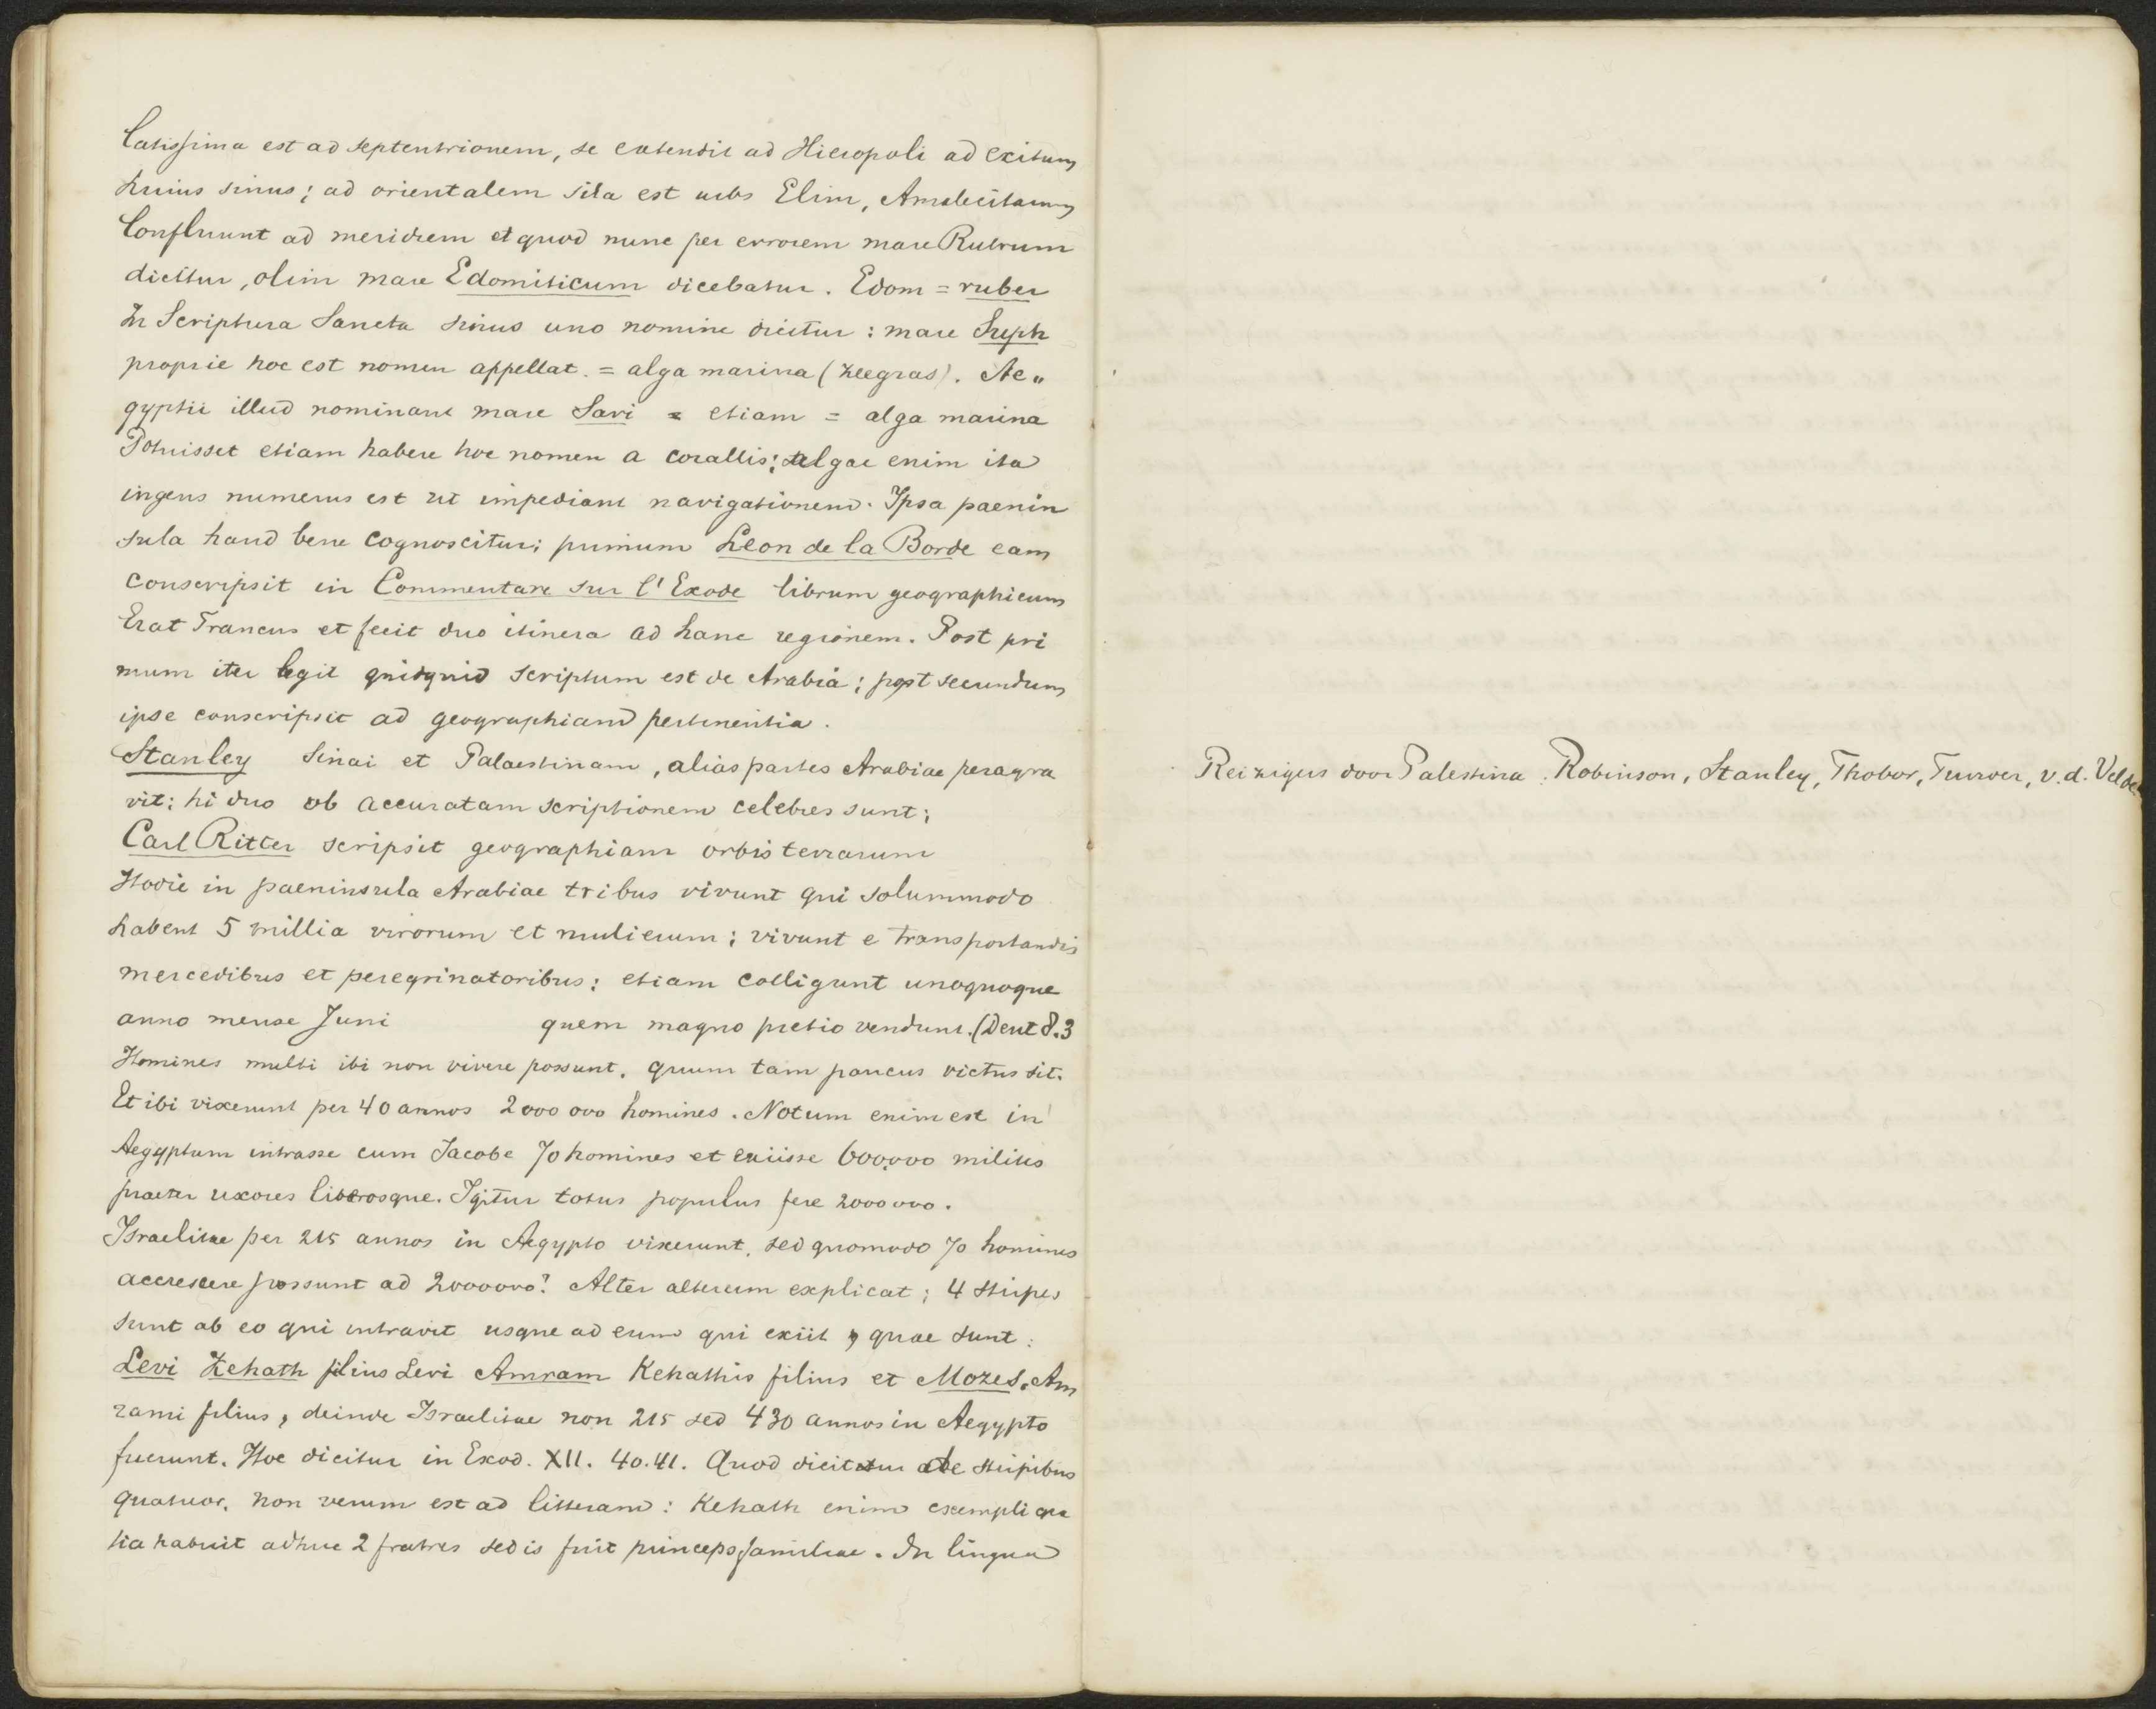 latissima est ad septentrionem, se extendit ad Hieropoli ad exitum
huius sinus; ad orientalem sita est urbs Elim, Amalecitarum
Confluunt ad meridiem et quod nunc per errorem mare Rubrum
dicitur, olim mare Edomiticum dicebatur. Edom = ruber
In Scriptura Sancta sinus uno nomine dicitur: mare Suph
proprie hoc est nomen appellat. = alga marina (zeegras). Ae„
gyptii illud nominant mare Sari = etiam = alga marina
Potuisset etiam habere hoc nomen a corallis; algae enim ita
ingens numerus est ut impediant navigationem. Ipsa paenin
sula haud bene cognoscitur; primum Leon de la Borde eam
conscripsit in Commentare sur l'Exode librum geographicum
Erat Francus et fecit duo itinera ad hanc regionem. Post pri
mum iter legit quidquid scriptum est de Arabia; post secundum
ipse conscripsit ad geographiam pertinentia.
Stanley Sinai et Palaestinam, alias partes Arabiae peragra
vit; hi duo ob accuratam scriptionem celebres sunt;
Carl Ritter scripsit geographiam orbis terrarum
Hodie in paeninsula Arabiae tribus vivunt qui solummodo
habent 5 millia virorum et mulierum; vivunt e transportandis
mercedibus et peregrinatoribus; etiam colligunt unoquoque
anno mense Juni quem magno pretio vendunt. (Deut 8.3
Homines multi ibi non vivere possunt, quum tam paucus victus sit.
Et ibi vixerunt per 40 annos 2000 000 homines. Notum enim est in
Aegyptum intrasse cum Jacobe 70 homines et exiisse 600,000 milites
praeter uxores liberosque. Igitur totus populus fere 2000000.
Israelitae per 215 annos in Aegypto vixerunt, sed quomodo 70 homines
accrescere possunt ad 2000000? Alter alterum explicat; 4 stirpes
sunt ab eo qui intravit usque ad eum qui exiit, quae sunt:
Levi Kehath filius Levi Amram Kehathis filius et Mozes, Am
rami filius, deinde Israelitae non 215 sed 430 annos in Aegypto
fuerunt. Hoc dicitur in Exod. XII. 40.41. Quod dicitur de stirpibus
quatuor, non verum est ad litteram: Kehath enim exempli gra
tia habuit adhuc 2 fratres sed is fuit princeps familiae. In lingua
Reizigers door Palestina. Robinson, Stanley, Thobor, Turver, v.d. Velde